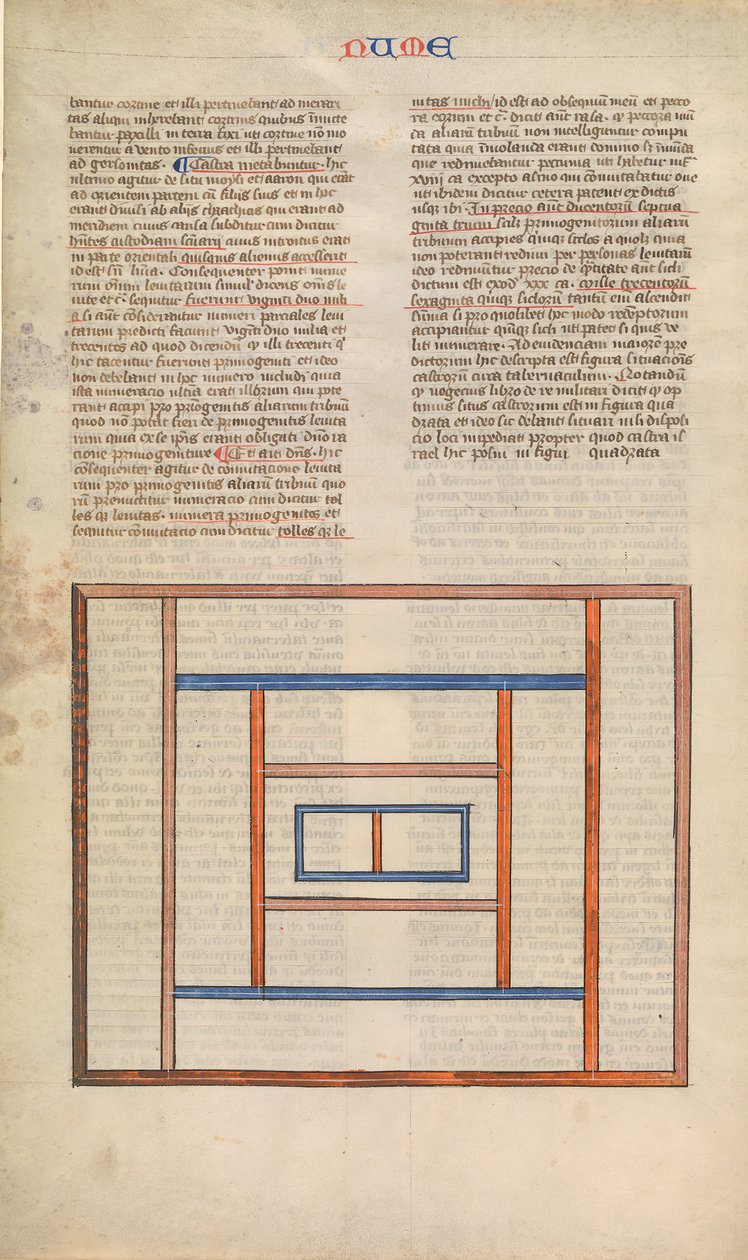 NUME
bantur cortine et illi pertinebant ad merari
tas aliqui inherebant cortinis quibus
bantur paxilli in terra fixi ut cortine non mo
verentur a vento inferius et illi pertinebant
ad gersonitas. Castra metabuntur. hic
ultimo agitur de situ moysi et aaron qui erat
ad orientem partem cum filiis suis et in hoc
erant divisi ab aliis chaathitis qui erant ad
meridiem cuius causa subditur cum dicitur
hñtes custodiam scuarii cuius introitus erat
in parte orientali quisquis alienus accesserit
id est sñ livia. Consequenter ponit nume
rum omnium levitarum simul dicens omnes le
vite et c. sequitur fuerunt viginti duo mili
a si aut considerantur numeri parciales levi
tarum predicti faciunt viginti duo milia et
trecentos ad quod dicendum q illi trecenti q
hic tacentur fuerunt primogeniti et ideo
non debebant in hoc numero includi quia
ista numeracio ultima erat illorum qui pote
rant accipi pro primogenitis aliarum tribuum
quod non potest fieri de primogenitis levita
rum quia ex se ipsis erant obligati dno ra
cione primogeniture Et ait dns. hic
consequenter agitur de comutacione levita
rum pro primogenitis aliarum tribuum quo
rum premittitur numeracio cum dicitur tol
les q levitas. numera primogenitos et
sequitur comutacio cum dicitur tolles q le
vitas michi id est ad obsequium meum et pecco
ra eorum et c. dicit aut rasa. q peccora mu
da aliarum tribuum non intelliguntur compu
tata quia imolanda erant domino sed imunda
que redimebantur pecunia ut habetur inf
xviii ca excepto asino qui comutabatur ove
ut ibidem dicitur cetera patent ex dictis
usq ibi. In precio aut ducentorum septua
ginta trium scilz primogenitorum aliarum
tribuum accipies quinq siclos a quolz quia
non poterant redimi per personas levitarum
ideo redimuntur precio de quantitate aut sicli
dictum est exod xxx ca. siclorum trecentorum
sexaginta quinq siclorum tantum enim ascendit
suma si pro quolibet hoc modo redemptorum
accipiantur quinq sicli ut patet si quis ve
lit numerare. Ad evidenciam maiorem pre
dictorum hic descripta est figura situacionis
castrorum circa tabernaculum. Notandum
q vegecius libro de re militari dicit q op
timus situs castrorum est in figura qua
drata et ideo sic debent situari nisi disposi
cio loci impediat propter quod castra is
rael hic posui in figura quadrata